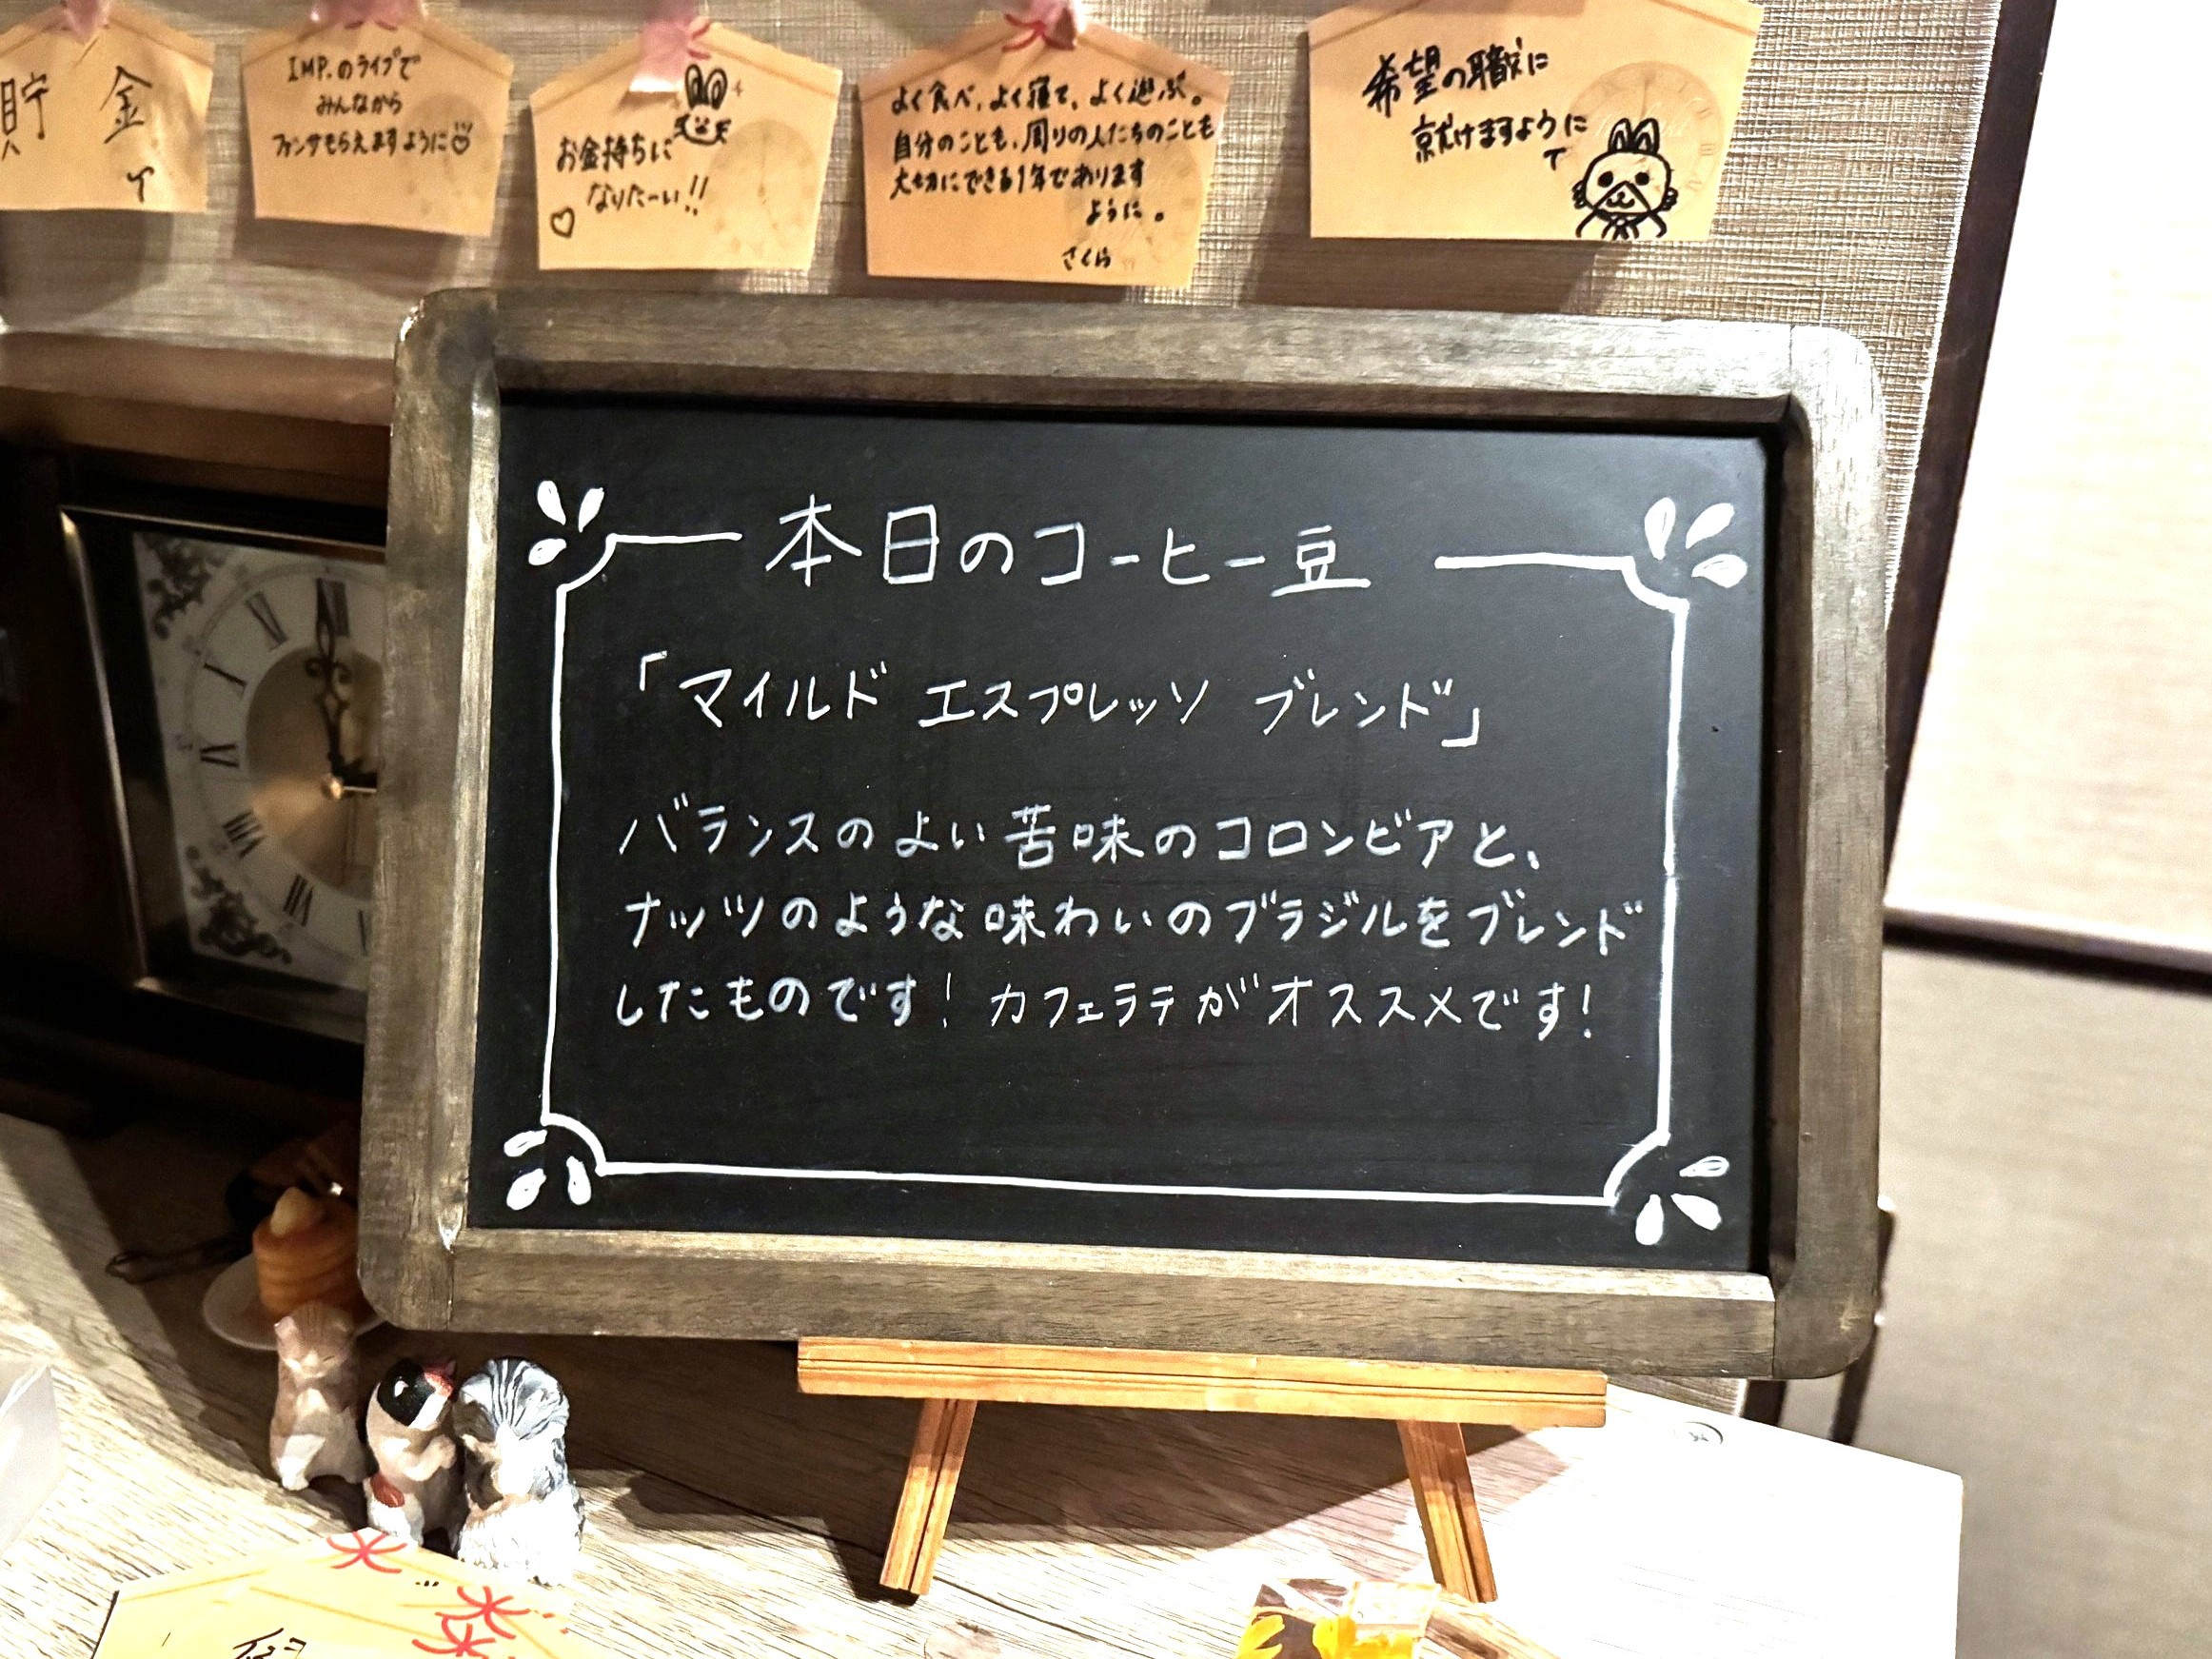 貯金
IMP.のライブで
みんなから
ファンサもらえますように
お金持ちに
なりたーい!!
よく食べ、よく寝て、よく遊ぶ。
自分のことも、周りの人たちのことも
大切にできる1年であります
ように。
さくら
希望の職に
就けますように
本日のコーヒー豆
「マイルド エスプレッソ ブレンド」
バランスのよい苦味のコロンビアと、
ナッツのような味わいのブラジルをブレンド
したものです! カフェラテがオススメです!